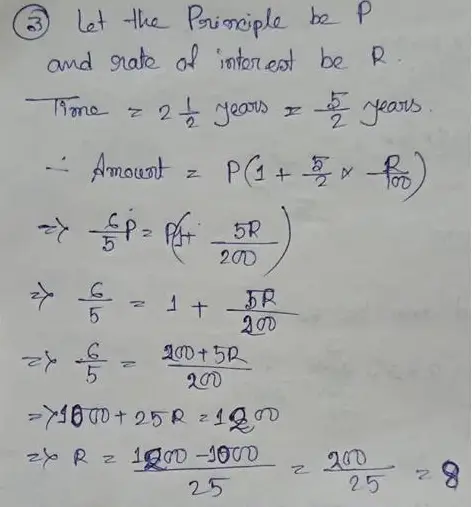 ③ Let the Principle be P
and rate of interest be R.
Time = 2 1/2 years = 5/2 years.
∴ Amount = P(1 + 5/2 × R/100)
=> 6/5 P = P(1 + 5R/200)
=> 6/5 = 1 + 5R/200
=> 6/5 = 200+5R/200
=> 1000 + 25R = 1200
=> R = 1200 - 1000/25 = 200/25 = 8